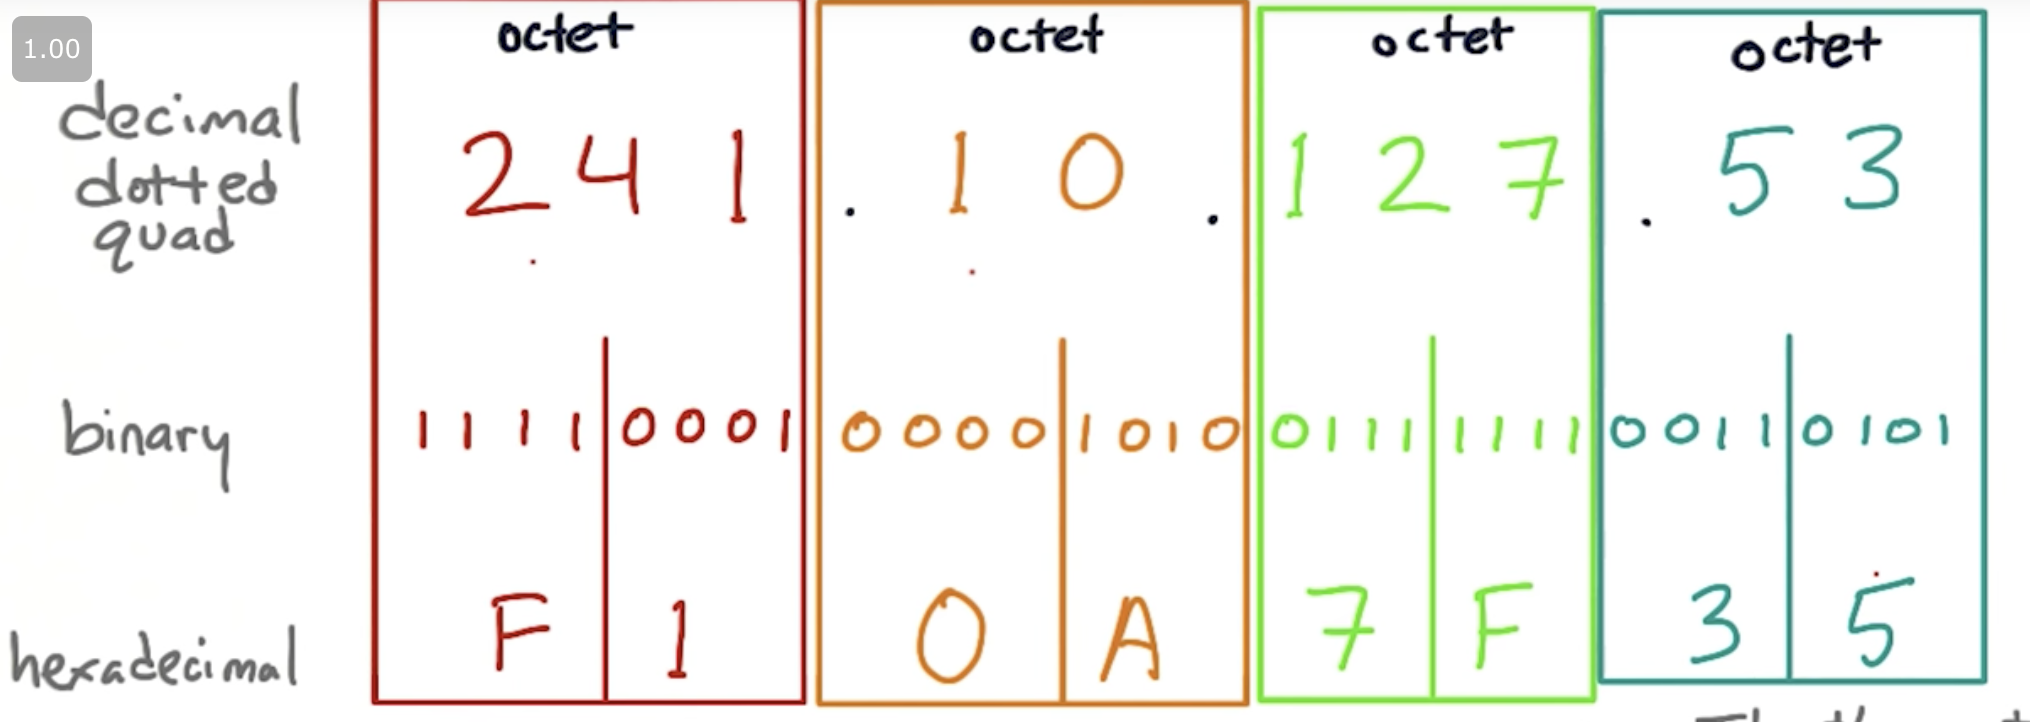 1.00
octet octet octet octet
decimal
dotted
quad
241 . 10 . 127 . 53
binary 1111 0001 0000 1010 0111 1111 0011 0101
hexadecimal F 1 0 A 7 F 3 5